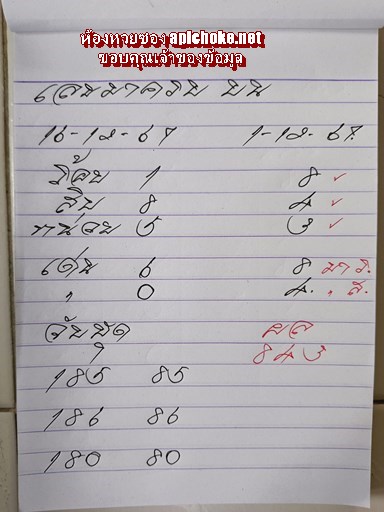 ห้องหวยซอง apichoke.net
ขอบคุณเจ้าของข้อมูล
เลขมาครบ บน
16-12-67 1-12-67.
ร้อย 1 8 ✓
สิบ 8 4 ✓
หน่วย 5 3 ✓
เด่น 6 8 มา ร.
" 0 4. " ส.
จับชุด ผล
843
185 85
186 86
180 80